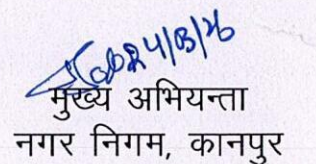 24/03/26
मुख्य अभियन्ता
नगर निगम, कानपुर